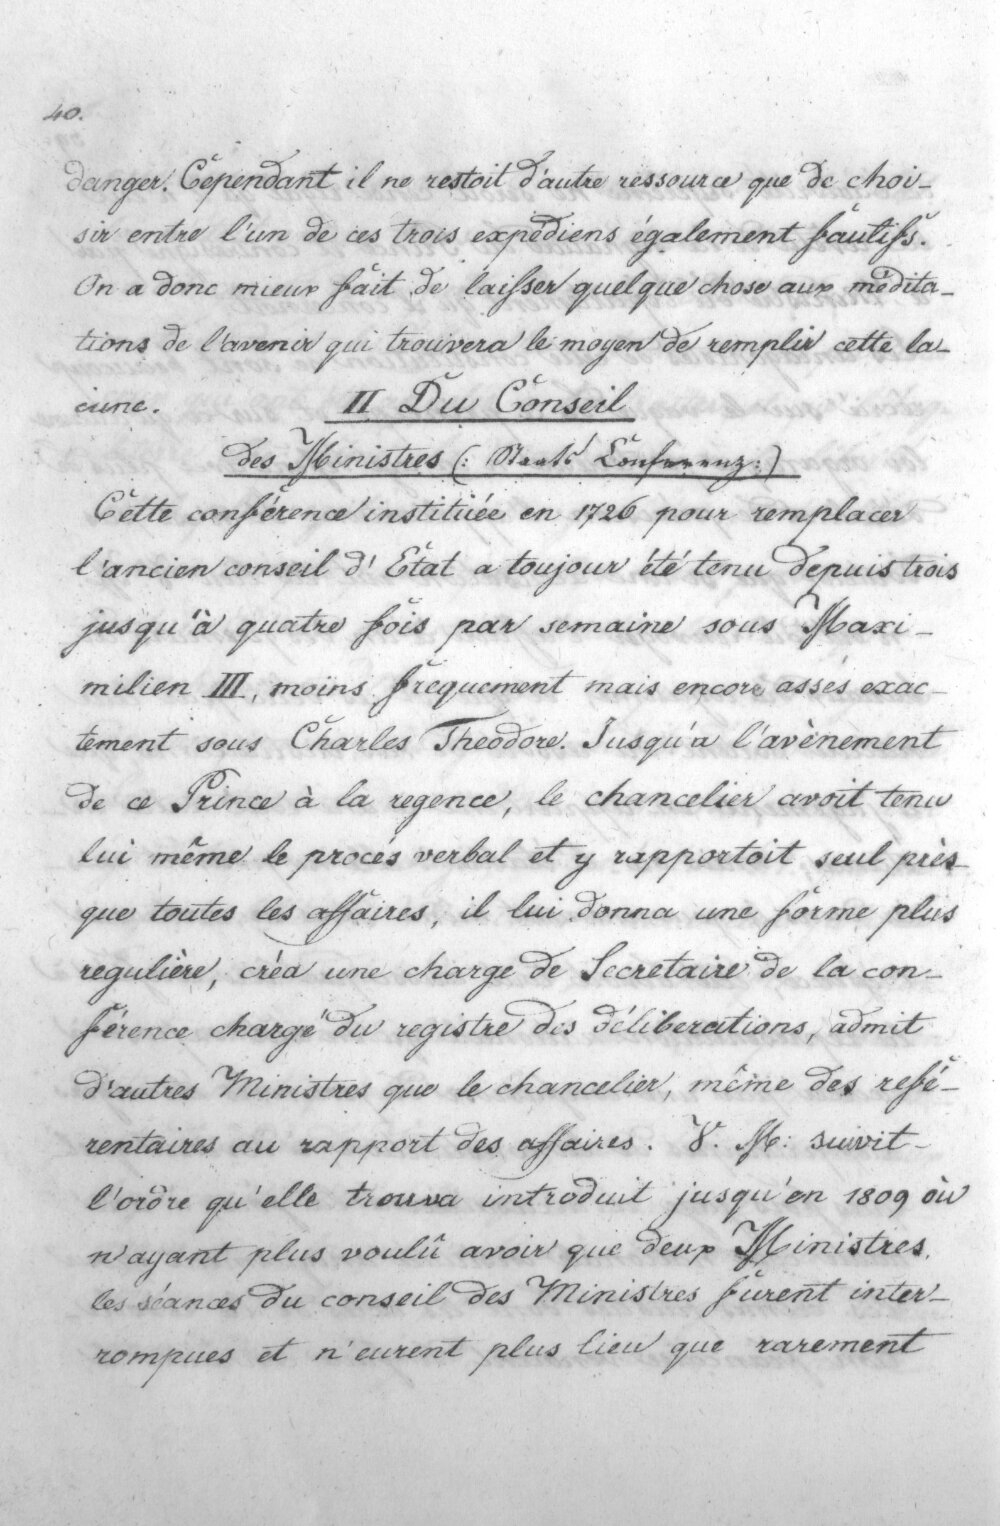 40.
danger. Cependant il ne restoit d'autre ressource que de choi-
sir entre l'un de ces trois expédiens également fautifs.
On a donc mieux fait de laisser quelque chose aux médita-
tions de l'avenir qui trouvera le moyen de remplir cette la-
cune.
II Du Conseil
des Ministres (: Staats Conferenz :)
Cette conférence instituée en 1726 pour remplacer
l'ancien conseil d'Etat a toujour été tenu depuis trois
jusqu'à quatre fois par semaine sous Maxi-
milien III, moins frequement mais encore assés exac-
tement sous Charles Theodore. Jusqu'a l'avènement
de ce Prince à la regence, le chancelier avoit tenu
lui même le procés verbal et y rapportoit seul près-
que toutes les affaires, il lui donna une forme plus
regulière, créa une charge de Secretaire de la con-
férence chargé du registre des déliberations, admit
d'autres Ministres que le chancelier, même des refé-
rentaires au rapport des affaires. V. M: suivit
l'ordre qu'elle trouva introduit jusqu'en 1809 où
n'ayant plus voulû avoir que deux Ministres,
les séances du conseil des Ministres furent inter-
rompues et n'eurent plus lieu que rarement